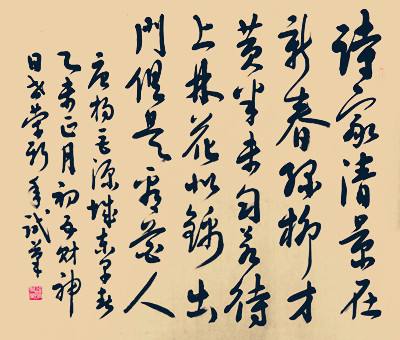 詩家清景在
新春绿柳才
黄半未匀若待
上林花似錦出
門俱是看花人
唐杨巨源城东早春
乙未正月初五财神
日荣新年試筆